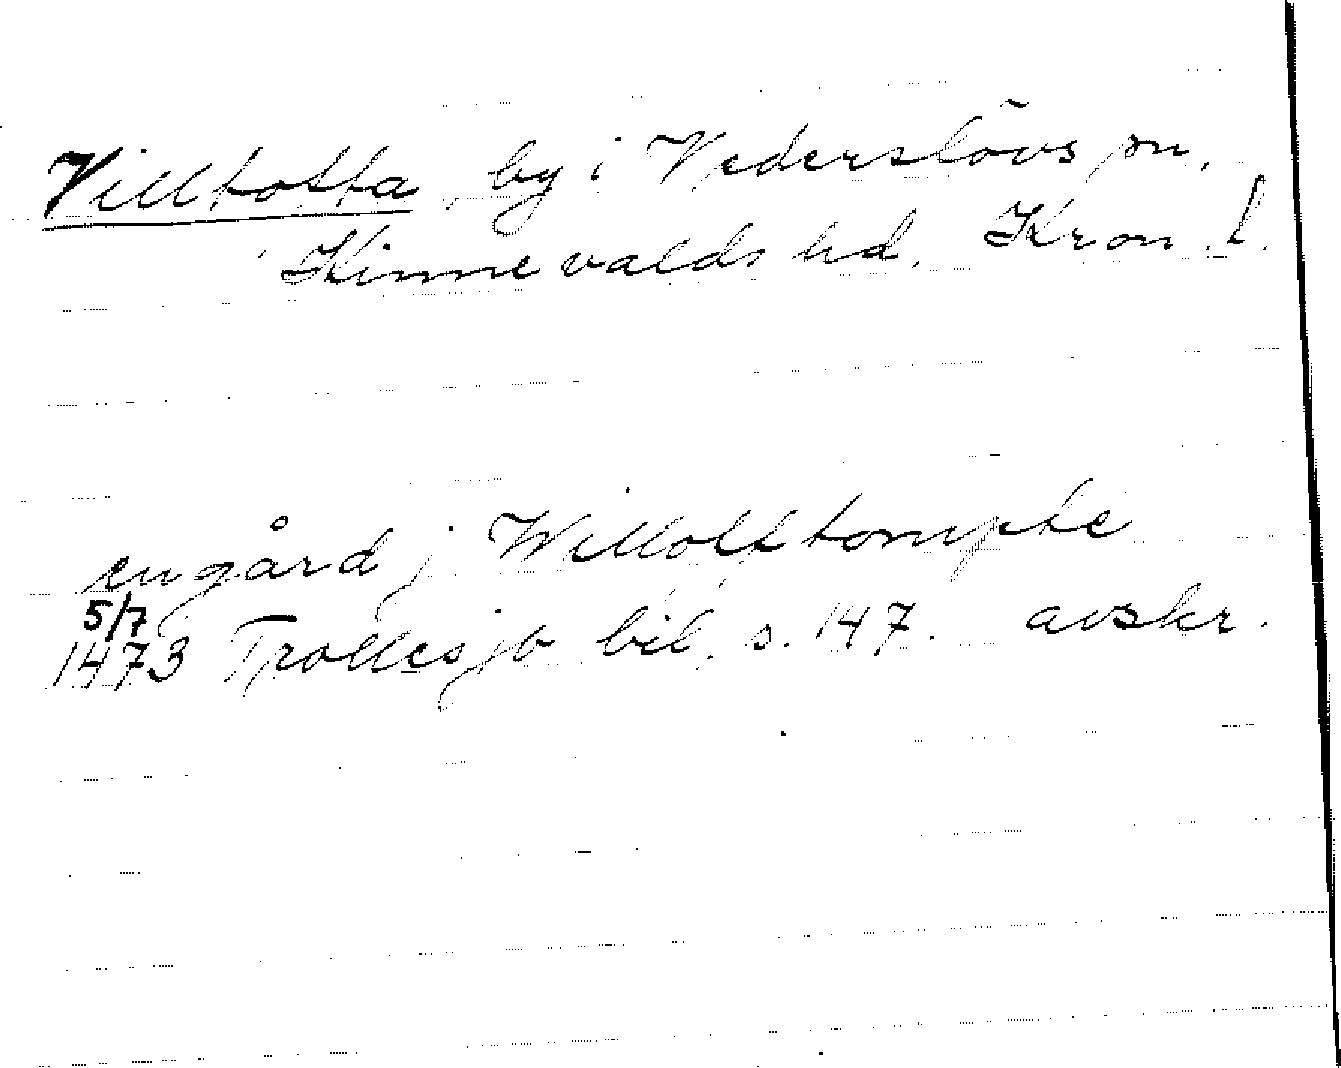 Villtofta by i Vederslövs sn,
Kinnevalds hd. Kron. l.
en gård j Willolttompte
5/7
1473 Trollesjö bil. s. 147. avskr.